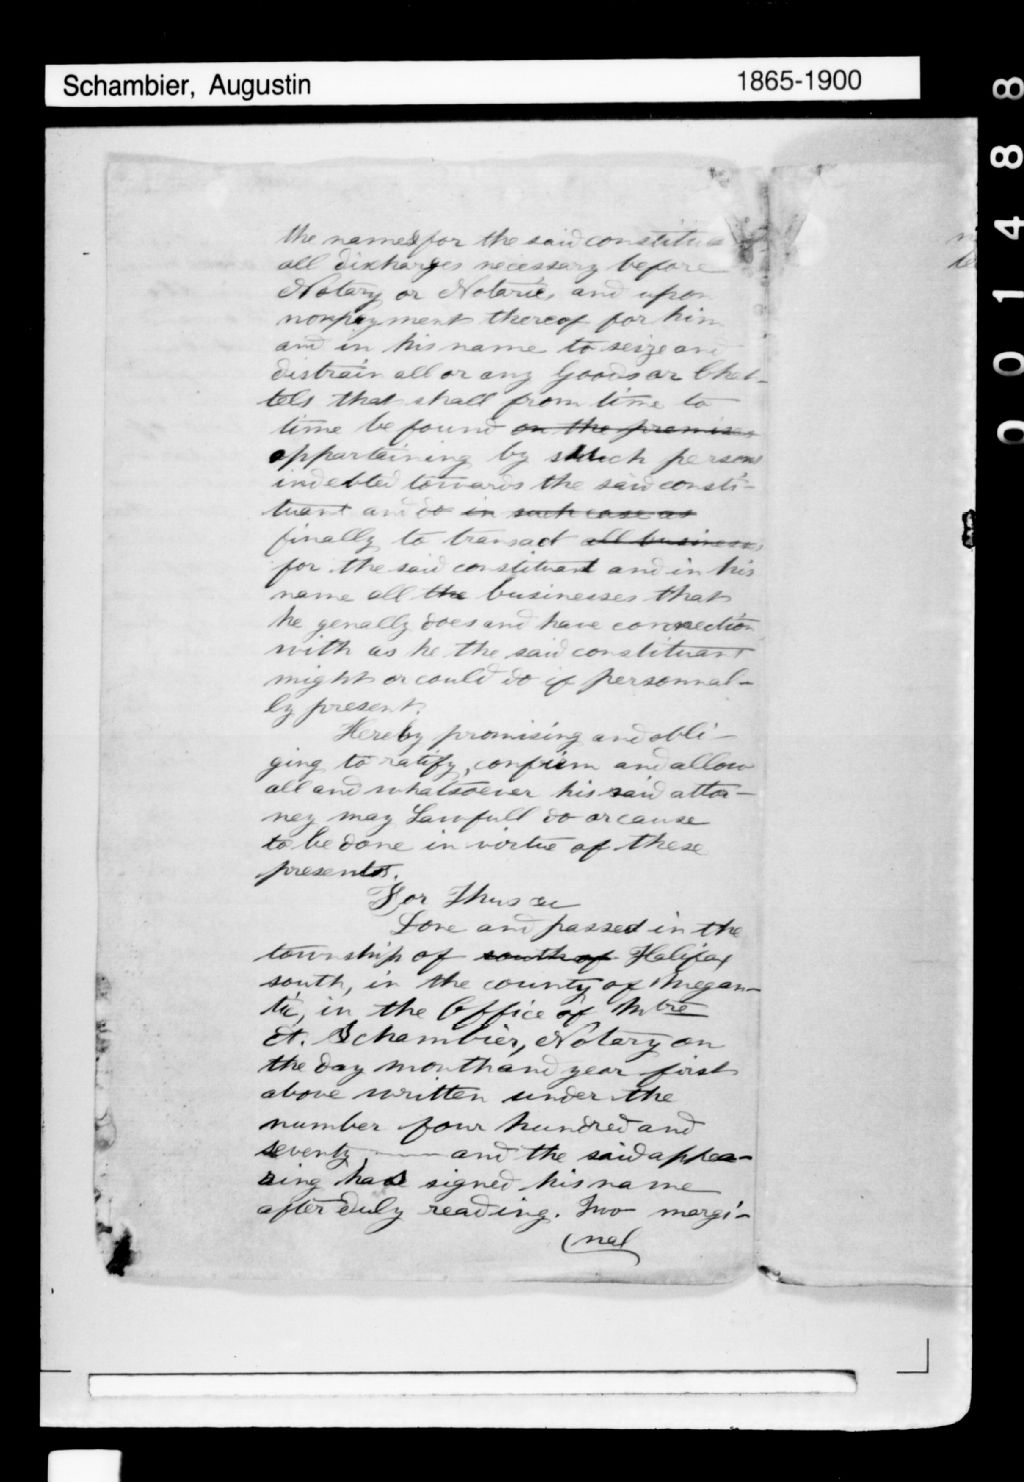 Schambier, Augustin 1865-1900
001488
the names for the said constitua
all dixharges necessary before
Notary or Notaries, and upon
nonpayment thereof for him
and in his name to seize and
distrain all or any Goods or Chat-
tels that shall from time to
time be found on the premises
appartaining by such persons
indebted towards the said consti-
tuant and do in such case as
finally to transact all business
for the said constituant and in his
name all the businesses that
he genally does and have connection
with as he the said constituant
might or could do if personnal-
ly present.
Hereby promising and obli-
ging to ratify, confirm and allow
all and whatsoever his said attor-
ney may Lawfull do or cause
to be done in virtue of these
presents.
For Thus
Done and passed in the
township of south of Halifax
south, in the county of Megan-
tic, in the Office of Mtre
A. Schambier, Notary on
the day month and year first
above written under the
number four hundred and
seventy, —— and the said appea-
ring has signed his name
after duly reading. Two margi-
nal